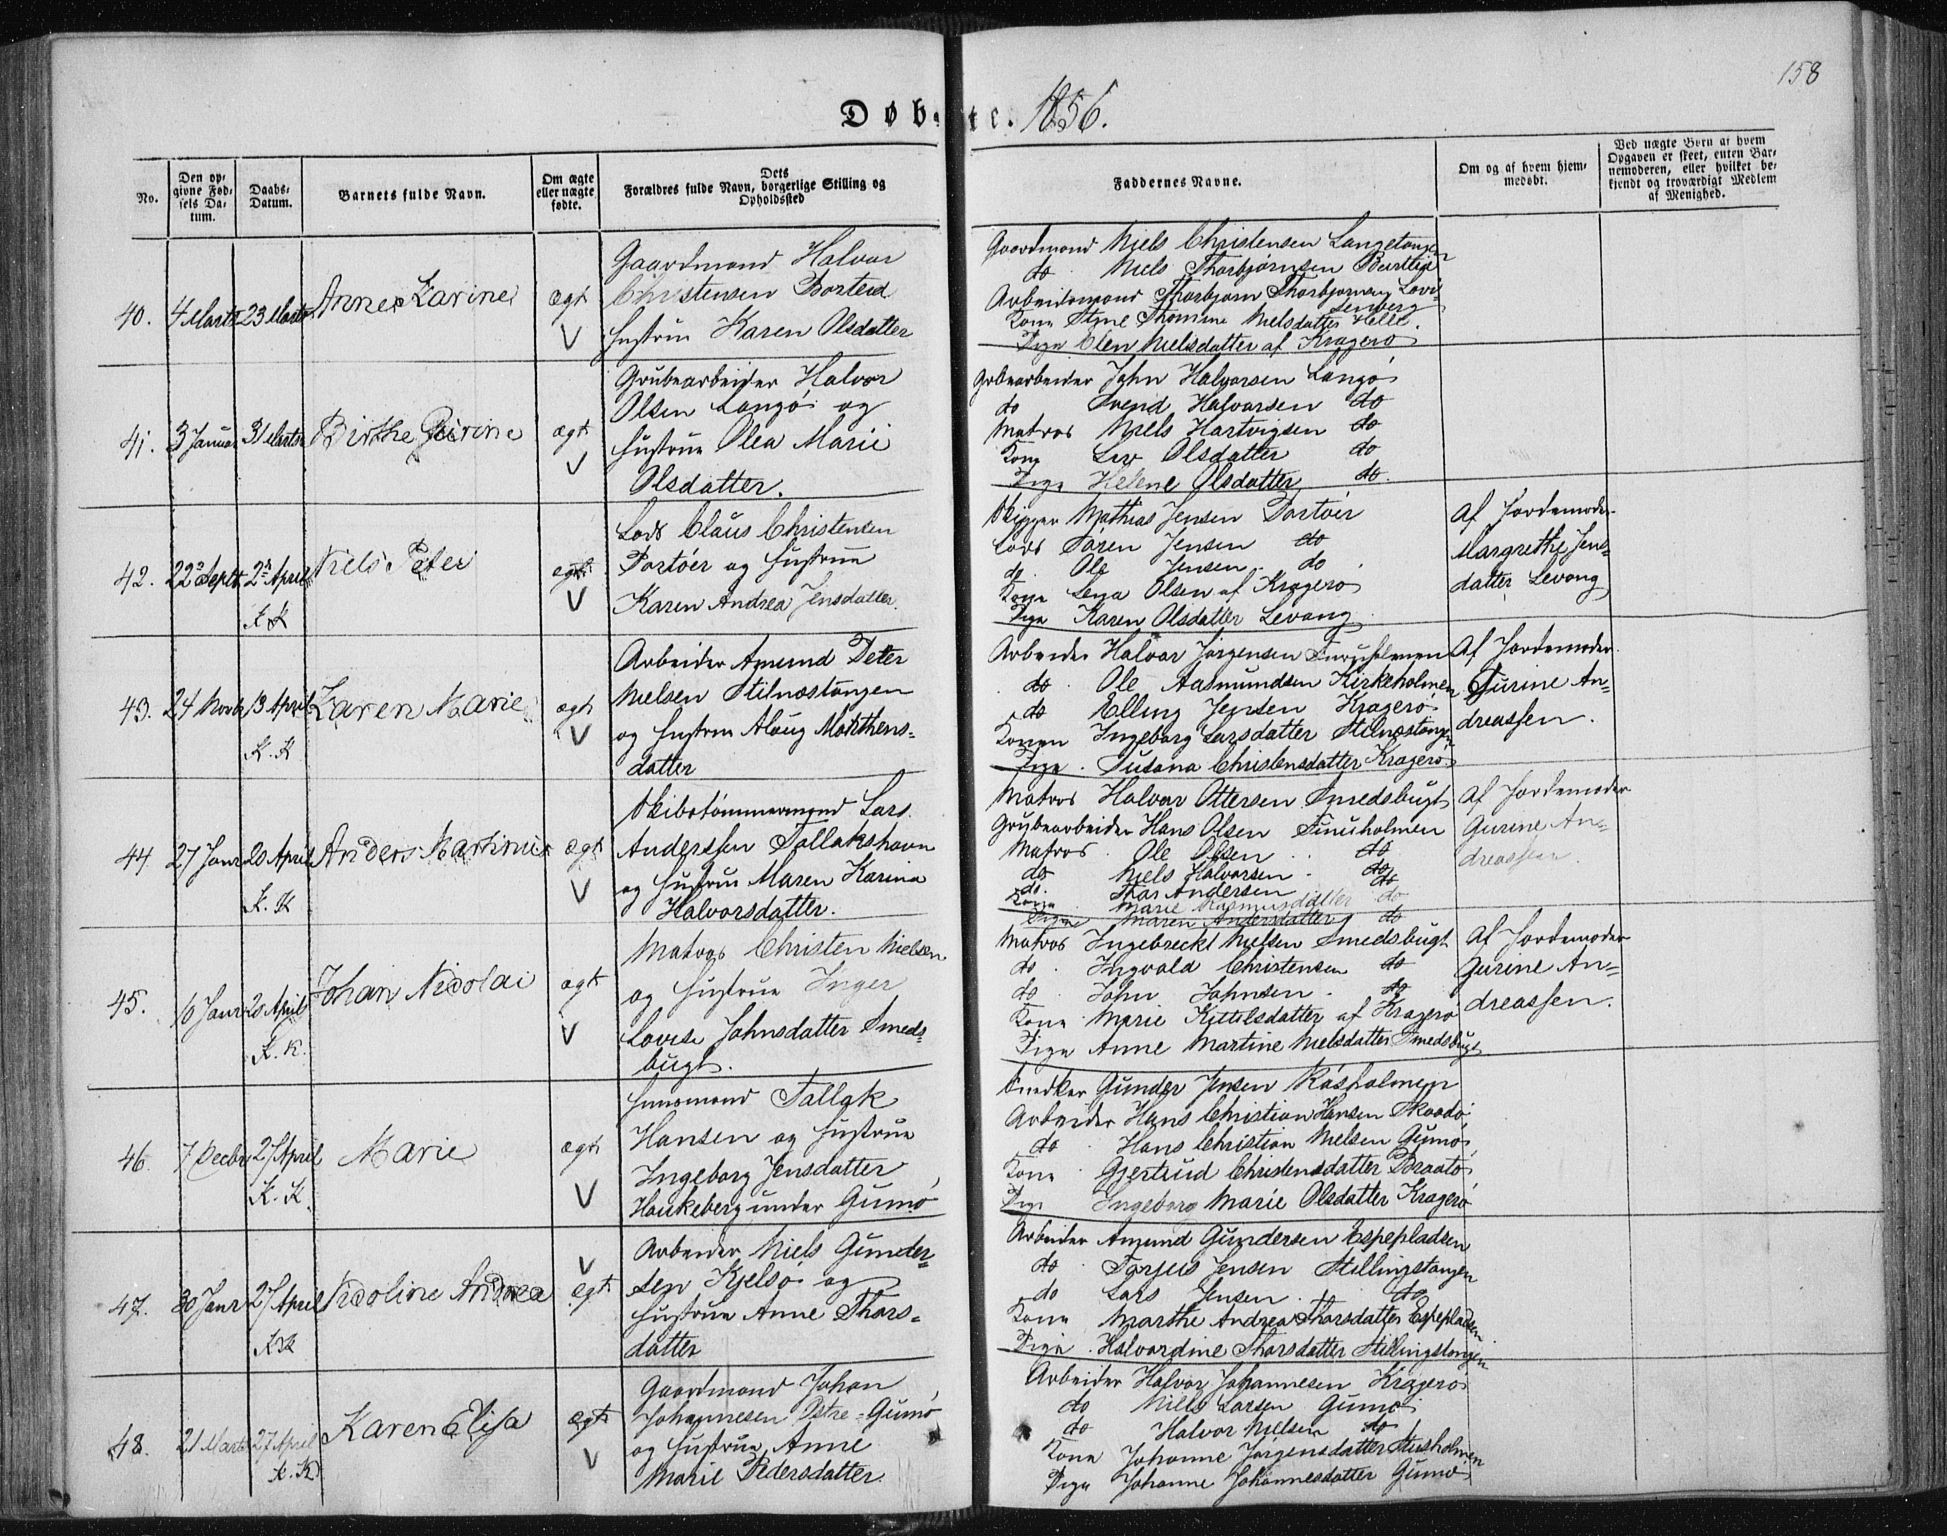 158
Døbte. 1856.
No.
Den op-
givne Fød-
sels Da-
tum.
Daabs-
Datum.
Barnets fulde Navn.
Om ægte
eller uægte
fødte.
Dets
Forældres fulde Navn, borgerlige Stilling og
Opholdssted
Faddernes Navne.
Om og af hvem hjem-
medøbt.
Ved uægte Børn af hvem
Opgaven er skeet, enten Bar-
nemoderen, eller hvilket be-
kjendt og troværdigt Medlem
af Menighed.
40. 4 Marts 23 Marts Anne Karine ægte V
Gaardmand Halvor
Christensen
Hustrue Karen Olsdatter
Gaardmand Niels Christensen Langetangen
do Niels Thorbjørnsen
Arbeidsmand Thorbjørn Thorbjørnsen
Kone Stine Thomine Nielsdatter Helle.
Pige Elen Nielsdatter af Kragerø
41. 3 Januar 31 Marts Birthe Gurine ægte V
Grubearbeider Halvor
Olsen Langø og
Hustrue Olea Marie
Olsdatter.
Grbearbeider John Halvorsen Langø
do Svend Halvorsen do
Matros Niels Hartvigsen do
Kone Liv Olsdatter do
Pige Helene Olsdatter do.
42. 22 Septbr 2 April K.K Niels Peter ægte V
Lods Claus Christensen
Portøer og Hustrue
Karen Andrea Jensdatter.
Skipper Mathias Jensen Portøer
Lods Søren Jensen do
do Ole Jensen do
Kone Lena Olsen af Kragerø
Pige Karen Olsdatter Levang
Af Jordemoder
Margrethe Jens-
datter Levang
43. 24 Novbr 13 April K.K Karen Marie ægte V
Arbeider Amund Peter
Nielsen Stilnæstangen
og Hustrue Aloug Mørthens-
datter
Arbeider Halvor Jørgensen Furuholmen
do Ole Aasmundsen Kirkeholmen
do Elling Jensen Kragerø
Konen Ingeborg Larsdatter Stilnæstangen
Pige Susana Christensdatter Kragerø
Af Jordemoder
Gurine An-
dreassen.
44. 27 Janr 20 April K.K Anders Martinus ægte V
Skibstømmermand Lars
Anderssen Tallakshavn
og Hustrue Maren Karina
Halvorsdatter.
Matros Halvor Ottersen Smedsbugt
Grubearbeider Hans Olsen Furuholmen
Matros Ole Olsen do
do Niels Halvorsen do
do. Thor Andersen do
Kone Marie Rasmusdatter do
Pige Maren Andersdatter do
Af Jordemoder
Gurine An-
dreassen.
45. 10 Janr 20 April K.K. Johan Nicolai ægte V
Matros Christen Nielsen
og Hustrue Inger
Lovise Johnsdatter Smeds-
bugt.
Matros Ingebreckt Nielsen Smedsbugt
do. Ingvald Christensen do
do John Johnsen do
Kone Marie Kittilsdatter af Kragerø
Pige Anne Martine Nielsdatter Smedsbugt
Af Jordemoder
Gurine An-
dreassen.
46. 7 Decbr 27 April K.K Marie ægte V
Huusmand Tallak
Hansen og Hustrue
Ingeborg Jensdatter
Haukeberg under Gumø
Snedker Gunder Jensen Kaasholmen
Arbeider Hans Christian Hansen Skaadø
do Hans Christian Nielsen Gumø
Kone Gjertrud Christensdatter Braatø
Pige Ingeborg Marie Olsdatter Kragerø
47. 30 Janr 27 April K.K Nicoline Andrea ægte V
Arbeider Niels Gunder-
sen Kjelsø og
Hustrue Anne Thors-
datter
Arbeider Amund Gundersen Espepladsen
do Torjus Jensen Stillingstangen
do Lars Jensen do
Kone Marthe Andrea Thorsdatter Espepladsen
Pige Halvordine Thorsdatter Stillingstangen
48. 21 Marts 27 April K.K Karen Elisa ægte V
Gaardmand Johan
Johannesen Østre-Gumø
og Hustrue Anne
Marie Pedersdatter.
Arbeider Halvor Johannesen Kragerø
do Niels Larsen Gumø
do Halvor Nielsen do
Kone Johanne Jørgensdatter
Pige Johanne Johannesdatter Gumø